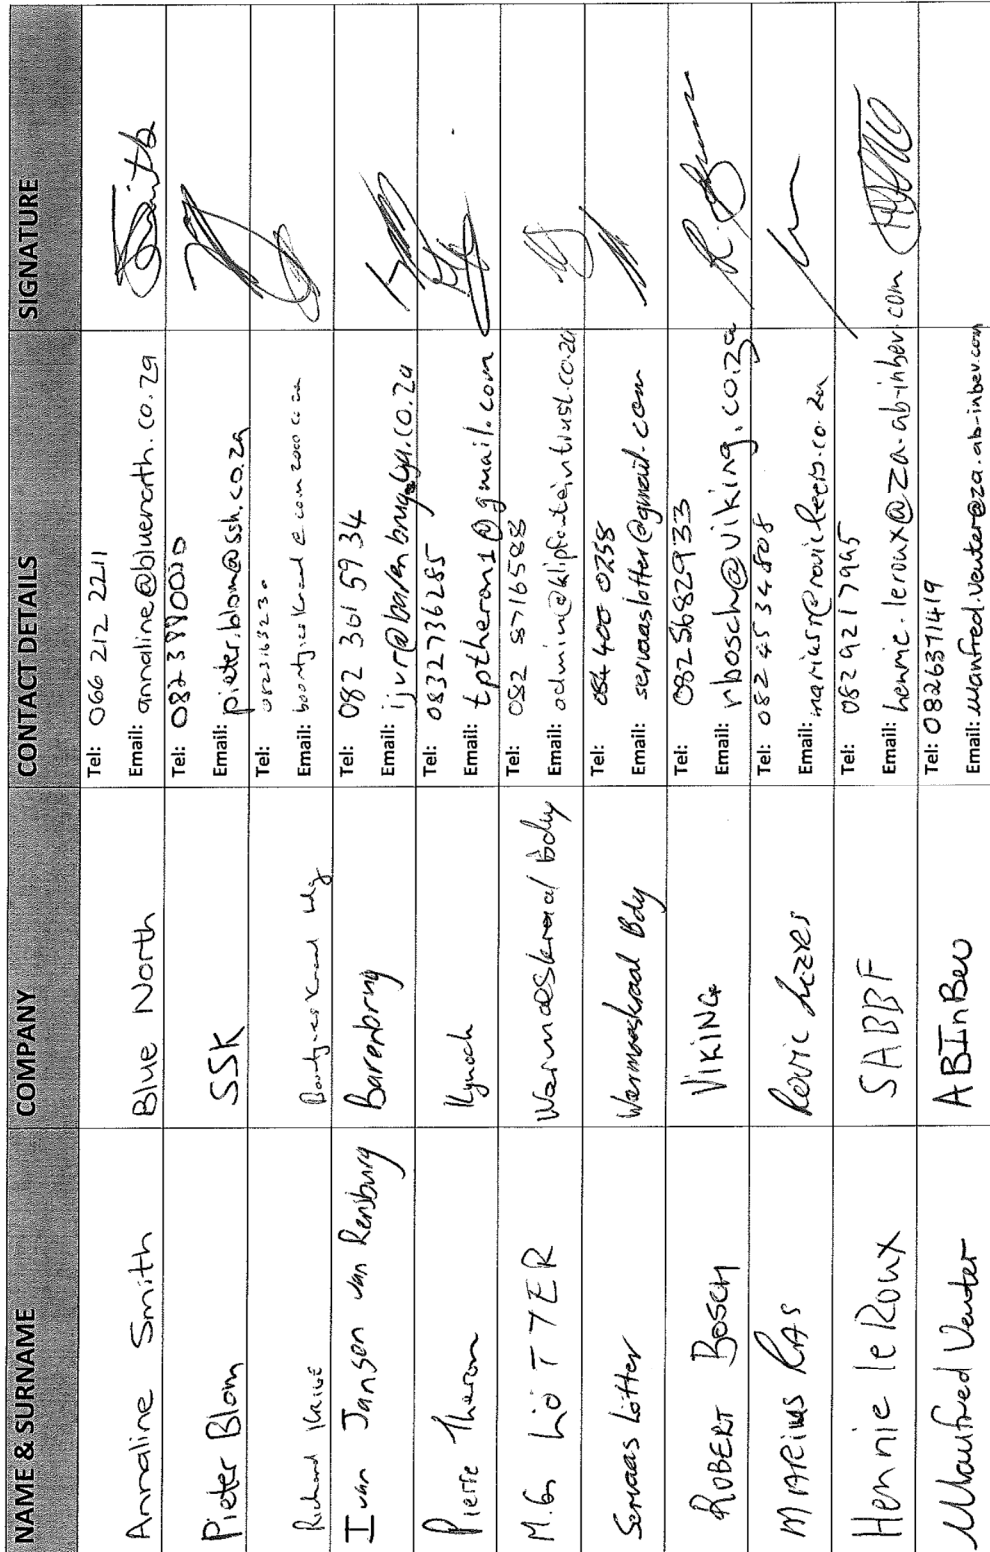 NAME & SURNAME COMPANY CONTACT DETAILS SIGNATURE
Annaline Smith Blue North Tel: 066 212 2211
Email: annaline@bluenorth.co.za
Pieter Blom SSK Tel:
Email: pieter.blom@ssk.co.za
Richard Tel:
Email:
Ivan Jansen van Rensburg Barenbrug Tel: 082 301 5934
Email: ijvr@barenbrug.co.za
Pierre Theron Kynoch Tel: 0832736285
Email: tptheron1@gmail.com
M.G. LÖTTER Warmoeskraal Bdy Tel: 082 8716588
Email:
Servaas Lötter Warmoeskraal Bdy Tel: 084 400 0258
Email: servaaslotter@gmail.com
ROBERT BOSCH VIKING Tel: 0825682933
Email: rbosch@viking.co.za
MARIUS RAS Rovic Leers Tel: 082 453 4808
Email: mariusr@rovicleers.co.za
Hennie le Roux SABBF Tel: 0829217995
Email: hennie.leroux@za.ab-inbev.com
Manfred Venter ABInBev Tel: 0826371419
Email: manfred.venter@za.ab-inbev.com